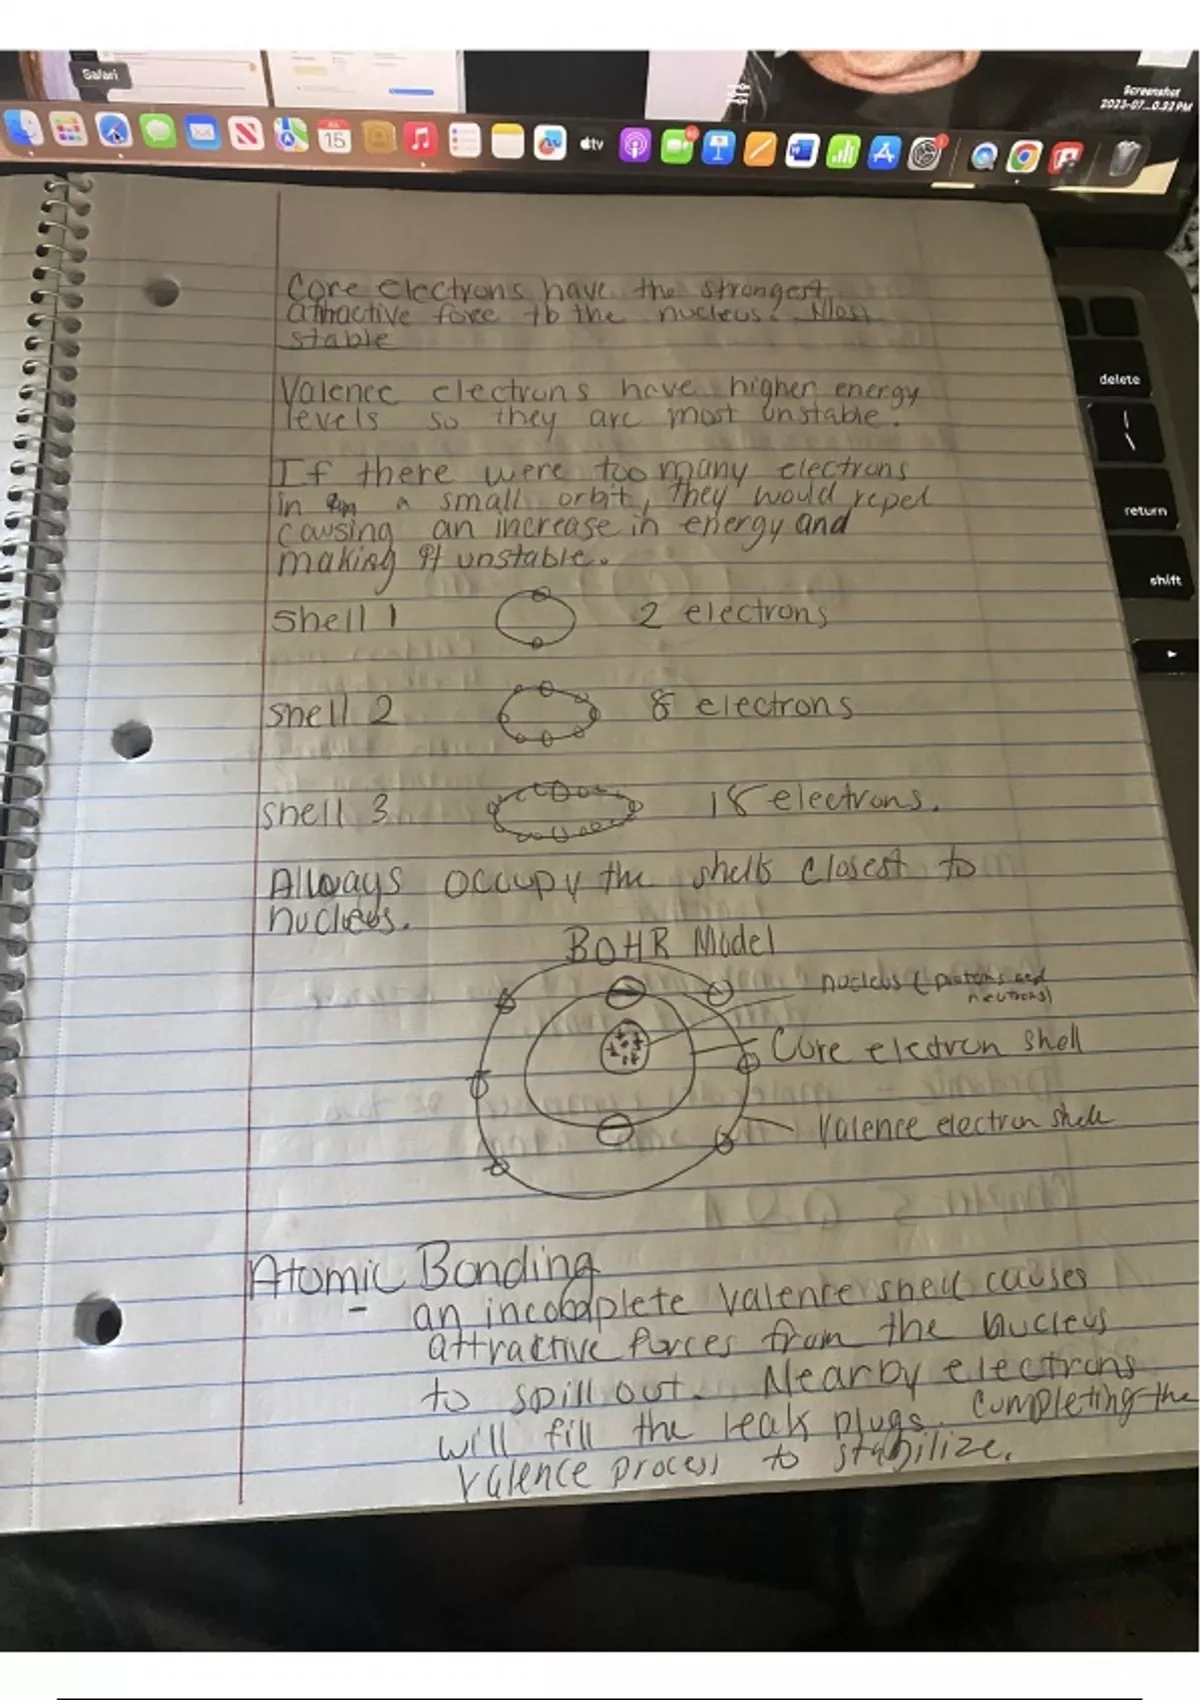 Safari
Screenshot
2023-07...0.32 PM
JUL
15
tv
Core electrons have the strongest
attractive force to the nucleus. Most
stable
delete
Valence electrons have higher energy
levels so they are most unstable.
|
\
If there were too many electrons
in a small orbit, they would repel
return
causing an increase in energy and
making it unstable.
shift
Shell 1 2 electrons
shell 2 8 electrons
shell 3 18 electrons.
Always occupy the shells closest to
nucleus.
BOHR Model
nucleus (protons and
neutrons)
Core electron shell
Valence electron shell
Atomic Bonding
- an incomplete valence shell causes
attractive forces from the nucleus
to spill out. Nearby electrons
will fill the leak plugs. Completing the
valence process to stabilize.